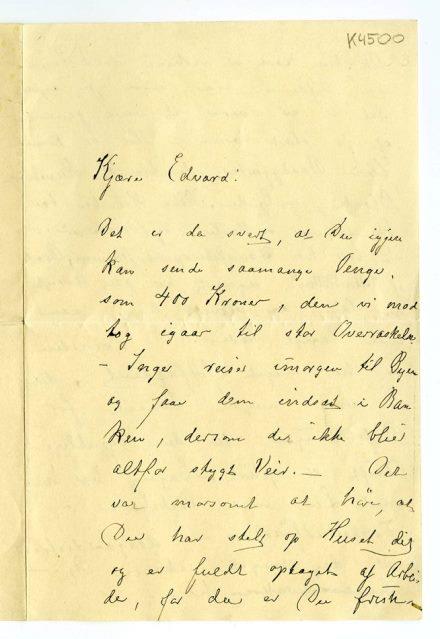 K4500
Kjære Edvard!
Det er da svert, at Du igjen
kan sende saamange Penge,
som 400 Kroner, den vi mod
tog igaar til stor Overraskelse
- Inger reiser imorgen til Byen
og faar dem indsat i Ban
ken, dersom der ikke blir
altfor stygt Veir. — Det
var morsomt at höre, at
Du har stelt op Huset dit
og er fuldt optaget af Arbei
de, for da er Du frisk